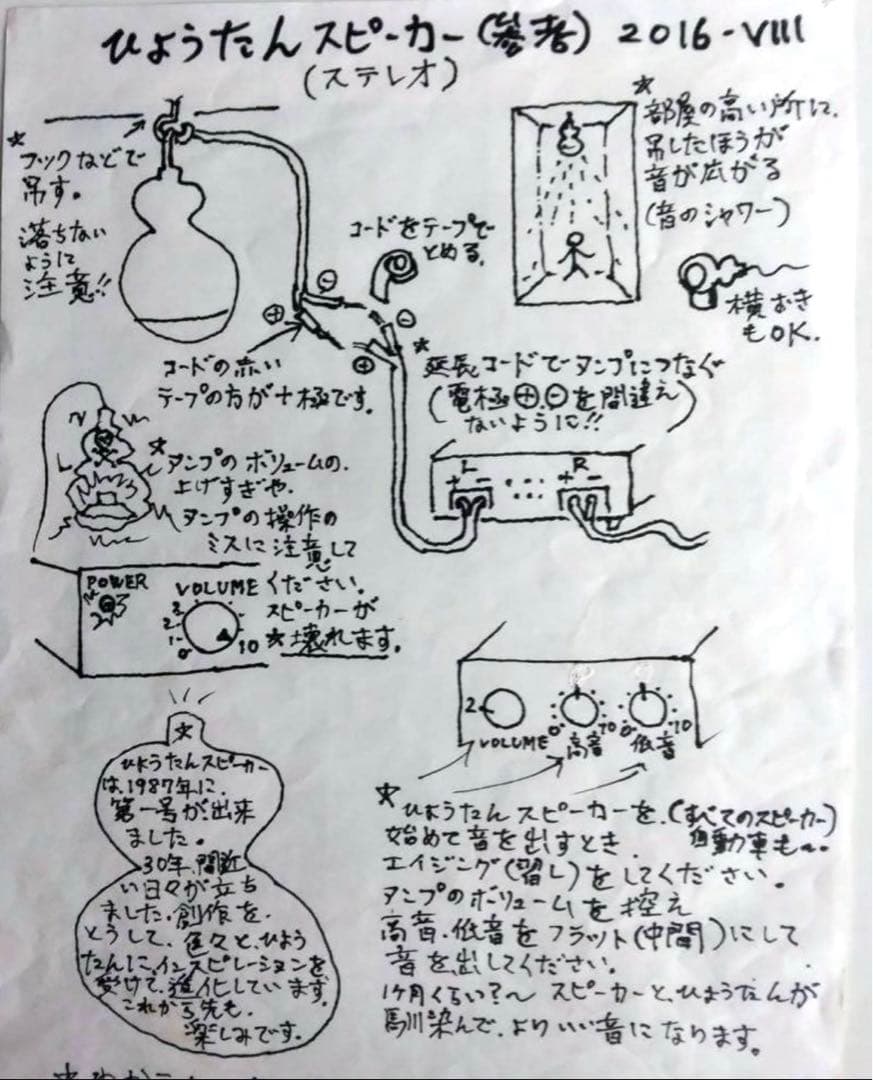 ひょうたんスピーカー(参考) 2016-VIII
(ステレオ)
*
フックなどで
吊す。
落ちない
ように
注意!!
コードをテープで
とめる。
*
部屋の高い所に、
吊したほうが
音が広がる
(音のシャワー)
横おき
もOK.
⊖
⊕
⊖
⊕
コードの赤い
テープの方が十極です。
*
延長コードでアンプにつなぐ
(電極⊕.⊖を間違え
ないように!!)
L R
+ - + -
*
アンプのボリュームの、
上げすぎや、
アンプの操作の
ミスに注意して
ください。
スピーカーが
*壊れます。
POWER
VOLUME
0 1 2 3 10
2 VOLUME
0 10 高音
0 10 低音
*
ひょうたんスピーカーは
は、1987年に、
第一号が出来
ました。
30年、間近
い日々が立ち
ました.創作を、
とうして、色々と、ひょう
たんに、インスピレーションを
受けて、進化しています。
これから先も、
楽しみです。
*
ひょうたんスピーカーを、(すべてのスピーカー)
自動車も〜.
始めて音を出すとき、
エイジング(習し)をしてください。
アンプのボリュームを控え
高音.低音をフラット(中間)にして
音を出してください。
1ヶ月くらい?〜スピーカーと、ひょうたんが
馴染んで、よりいい音になります。